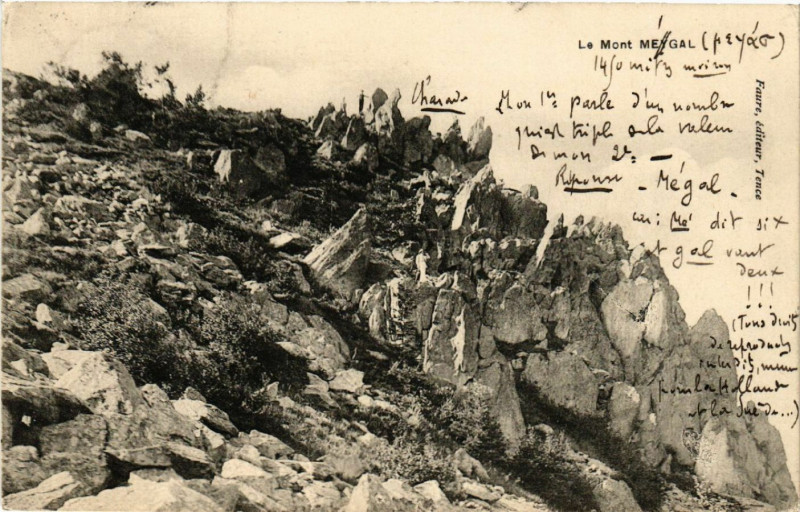 Le Mont MÉZGAL (μεγάσ)
1450 mètres environ
Faure, éditeur, Tence
Charade
Mon 1er parle d'un nombre
qui est triple de la valeur
de mon 2e. —
Réponse — Mégal.
car: Mé dit six
et gal vaut
deux
!!!
(Tous droits
de reproduction
interdits, même
pour la Hollande
et la Suède...)